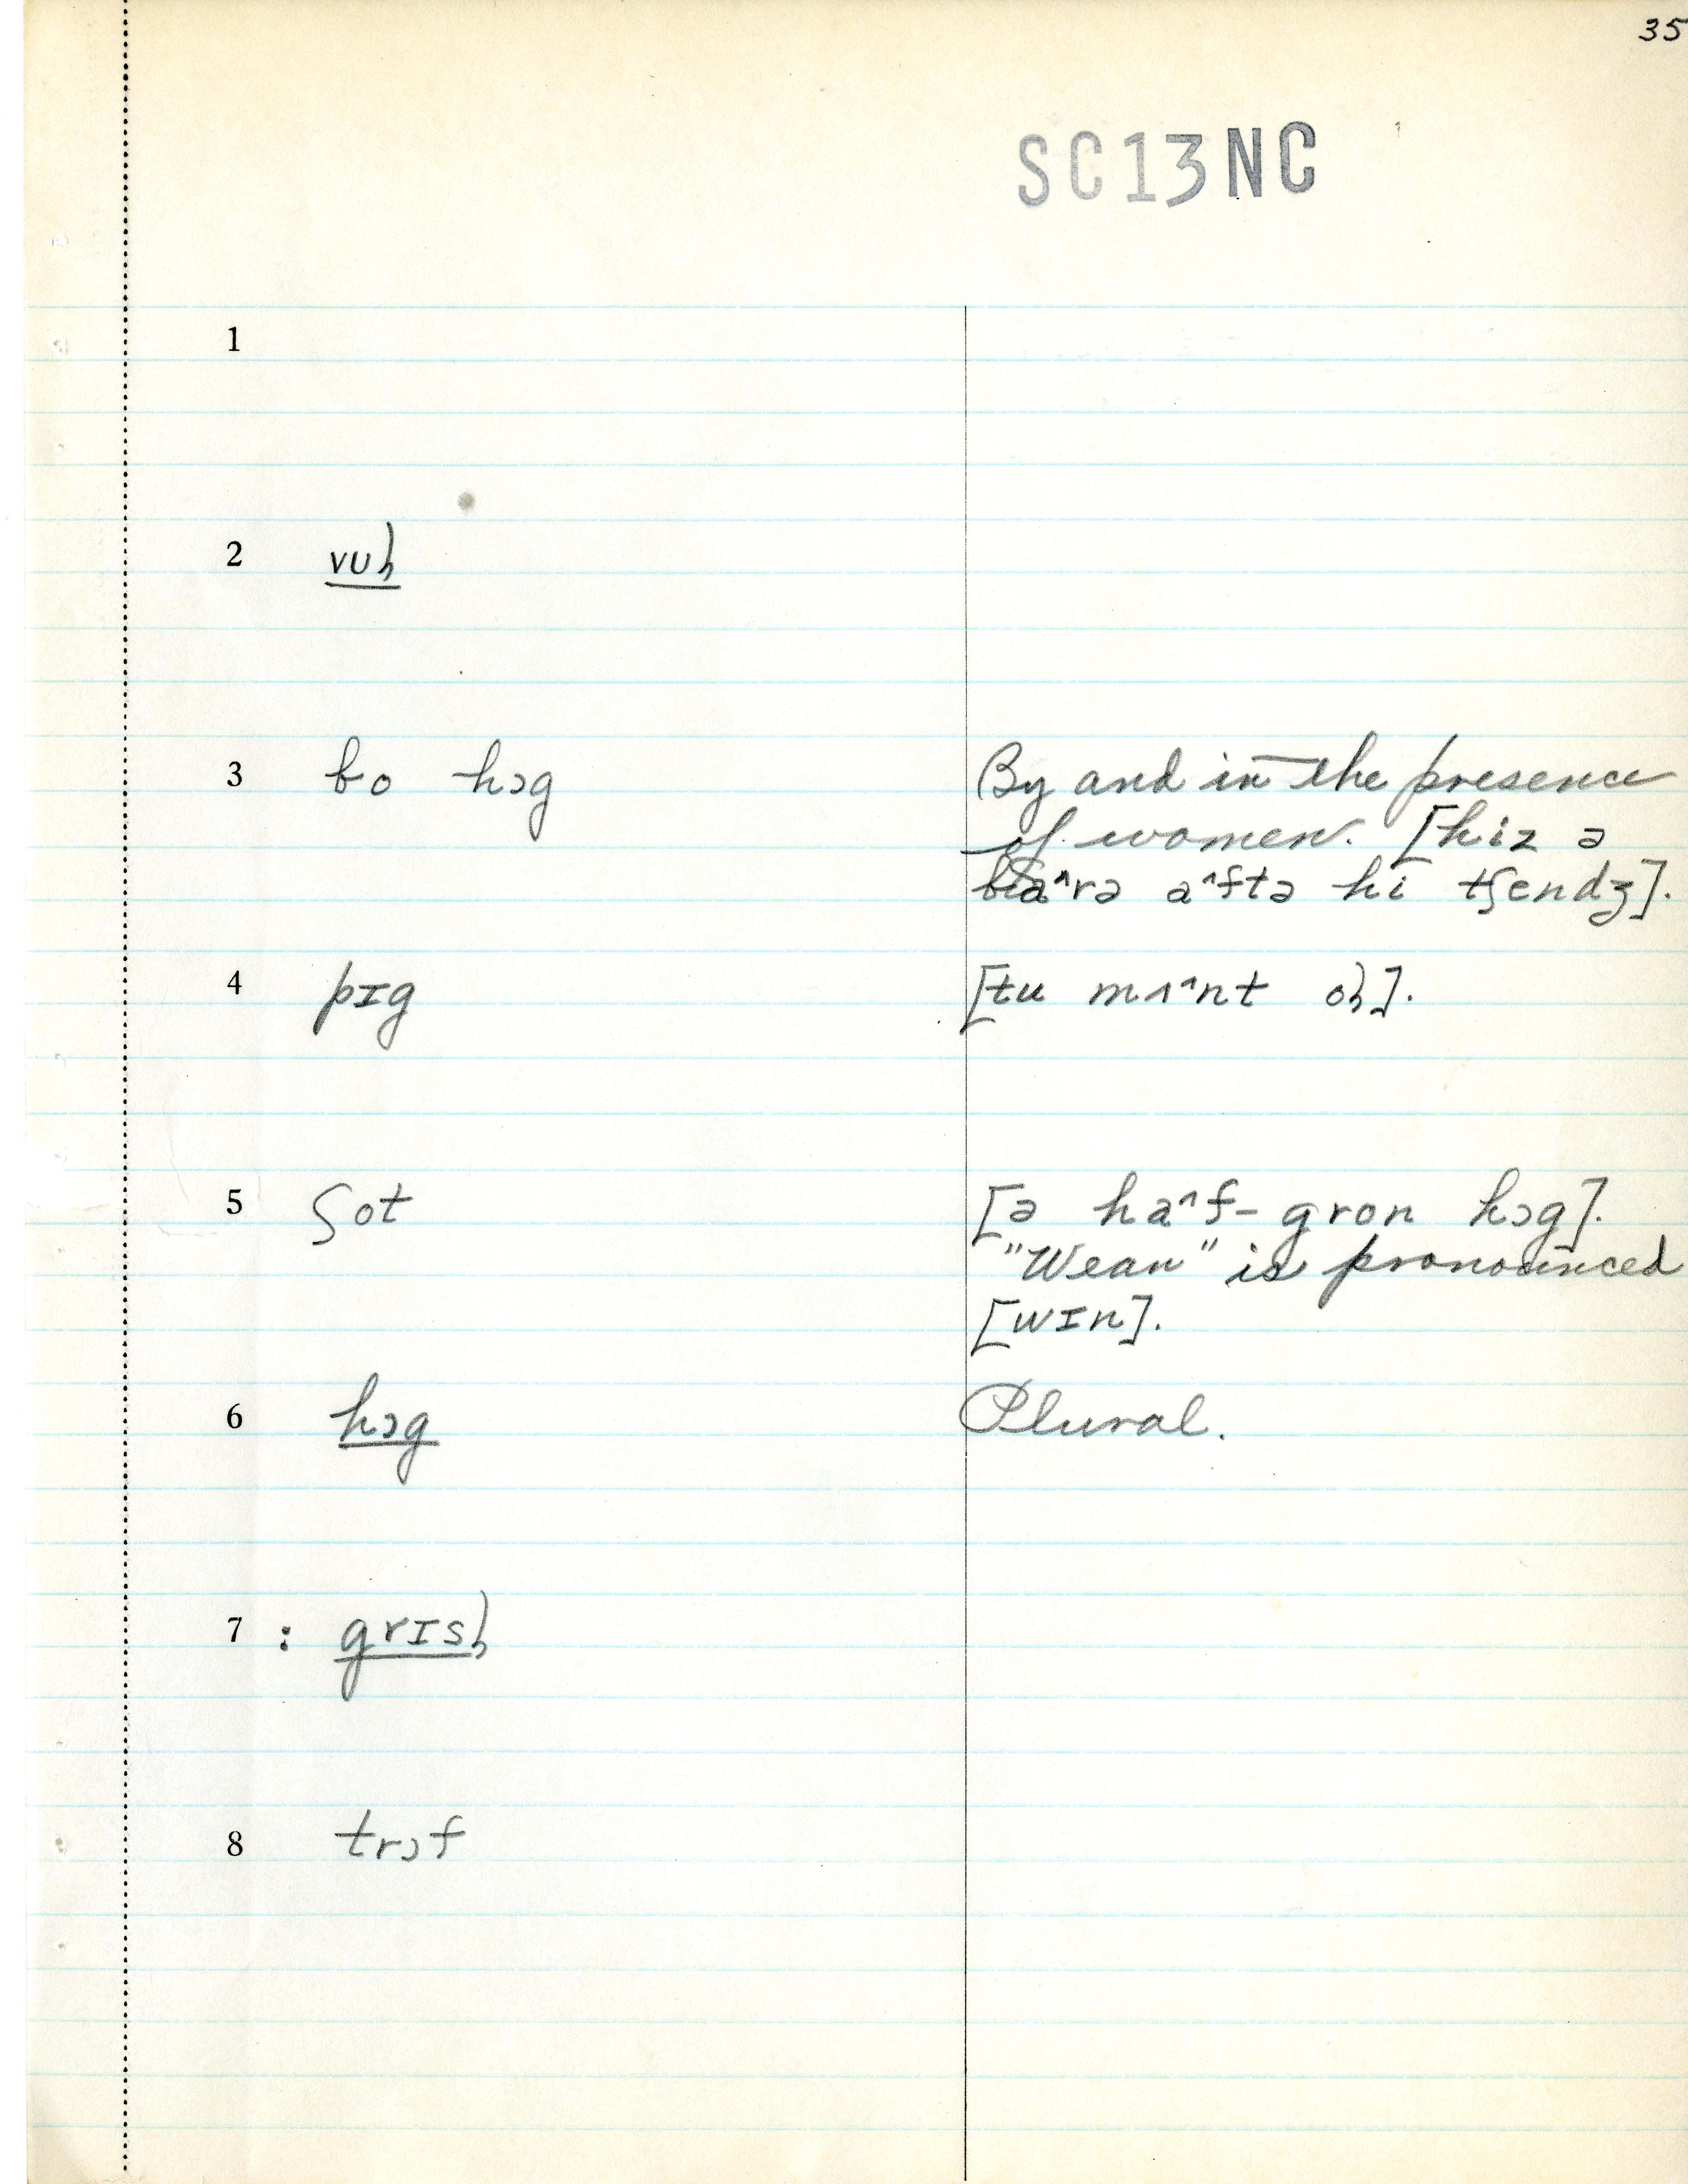 35
SC13NC
1
2 vuɦ
3 bo hɔg By and in the presence
of women. [hiz ə
ba^rə a^ftə hi tʃendʒ].
4 pɪg [tu mʌ^nt oɦ].
5 ʃot [ə ha^f-gron hɔg].
"Wean" is pronounced
[wɪn].
6 hɔg Plural.
7 : grɪsɦ
8 trɔf